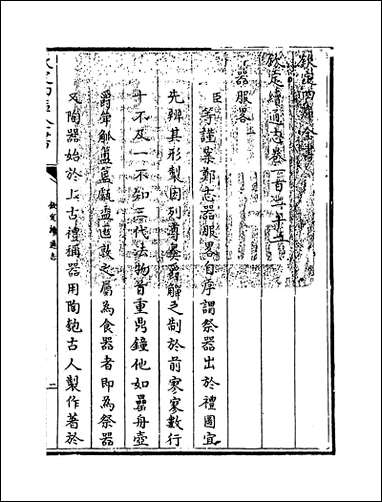 欽定四庫全書
欽定續通志卷一百二十
器服畧
臣等謹案鄭志器服畧自序謂祭器出於禮圖宜
先辨其形製因列尊彝爵觶之制於前寥寥數行
十不及一不知三代法物首重鼎鐘他如罍舟壺
爵斝觚簠簋甗盉匜敦之屬為食器者即為祭器
又陶器始於上古禮稱器用陶匏古人製作著於
欽定續通志